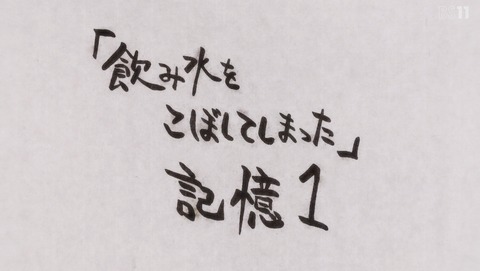 「飲み水を
こぼしてしまった」
記憶1